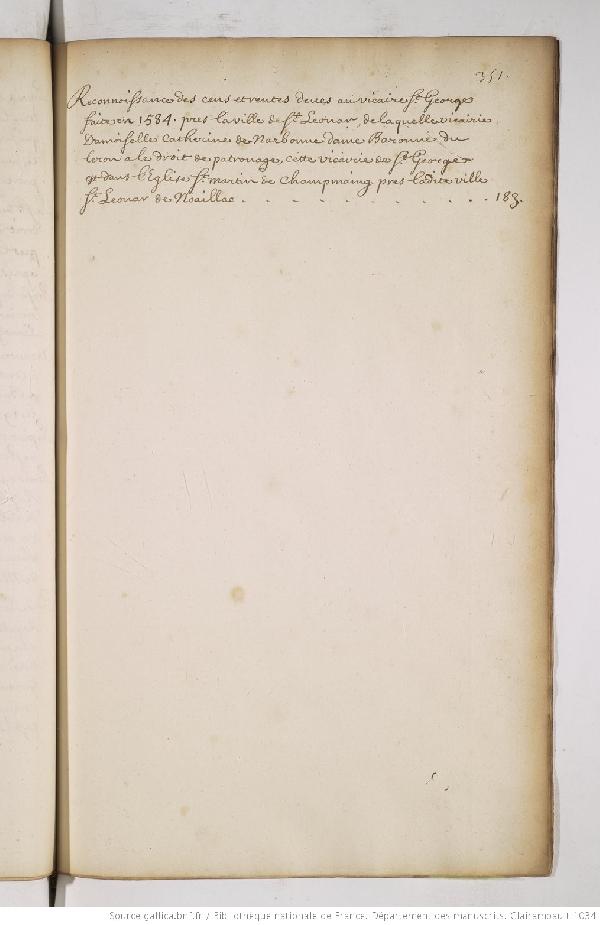 351.
Reconnoissance des cens et rentes deues au vicaire St. George
faite en 1584. pres la ville de St. Leonar, de laquelle vicairie
Damoiselle Catherine de Narbonne dame Baronne du
leron a le droit de patronage, cette vicairie de St. George
est dans l'Eglise St. martin de Champmaing pres ladite ville
St. Leonar de Noaillac . . . . . . . . . . . 183.
Source gallica.bnf.fr / Bibliothèque nationale de France. Département des manuscrits. Clairambault 1034